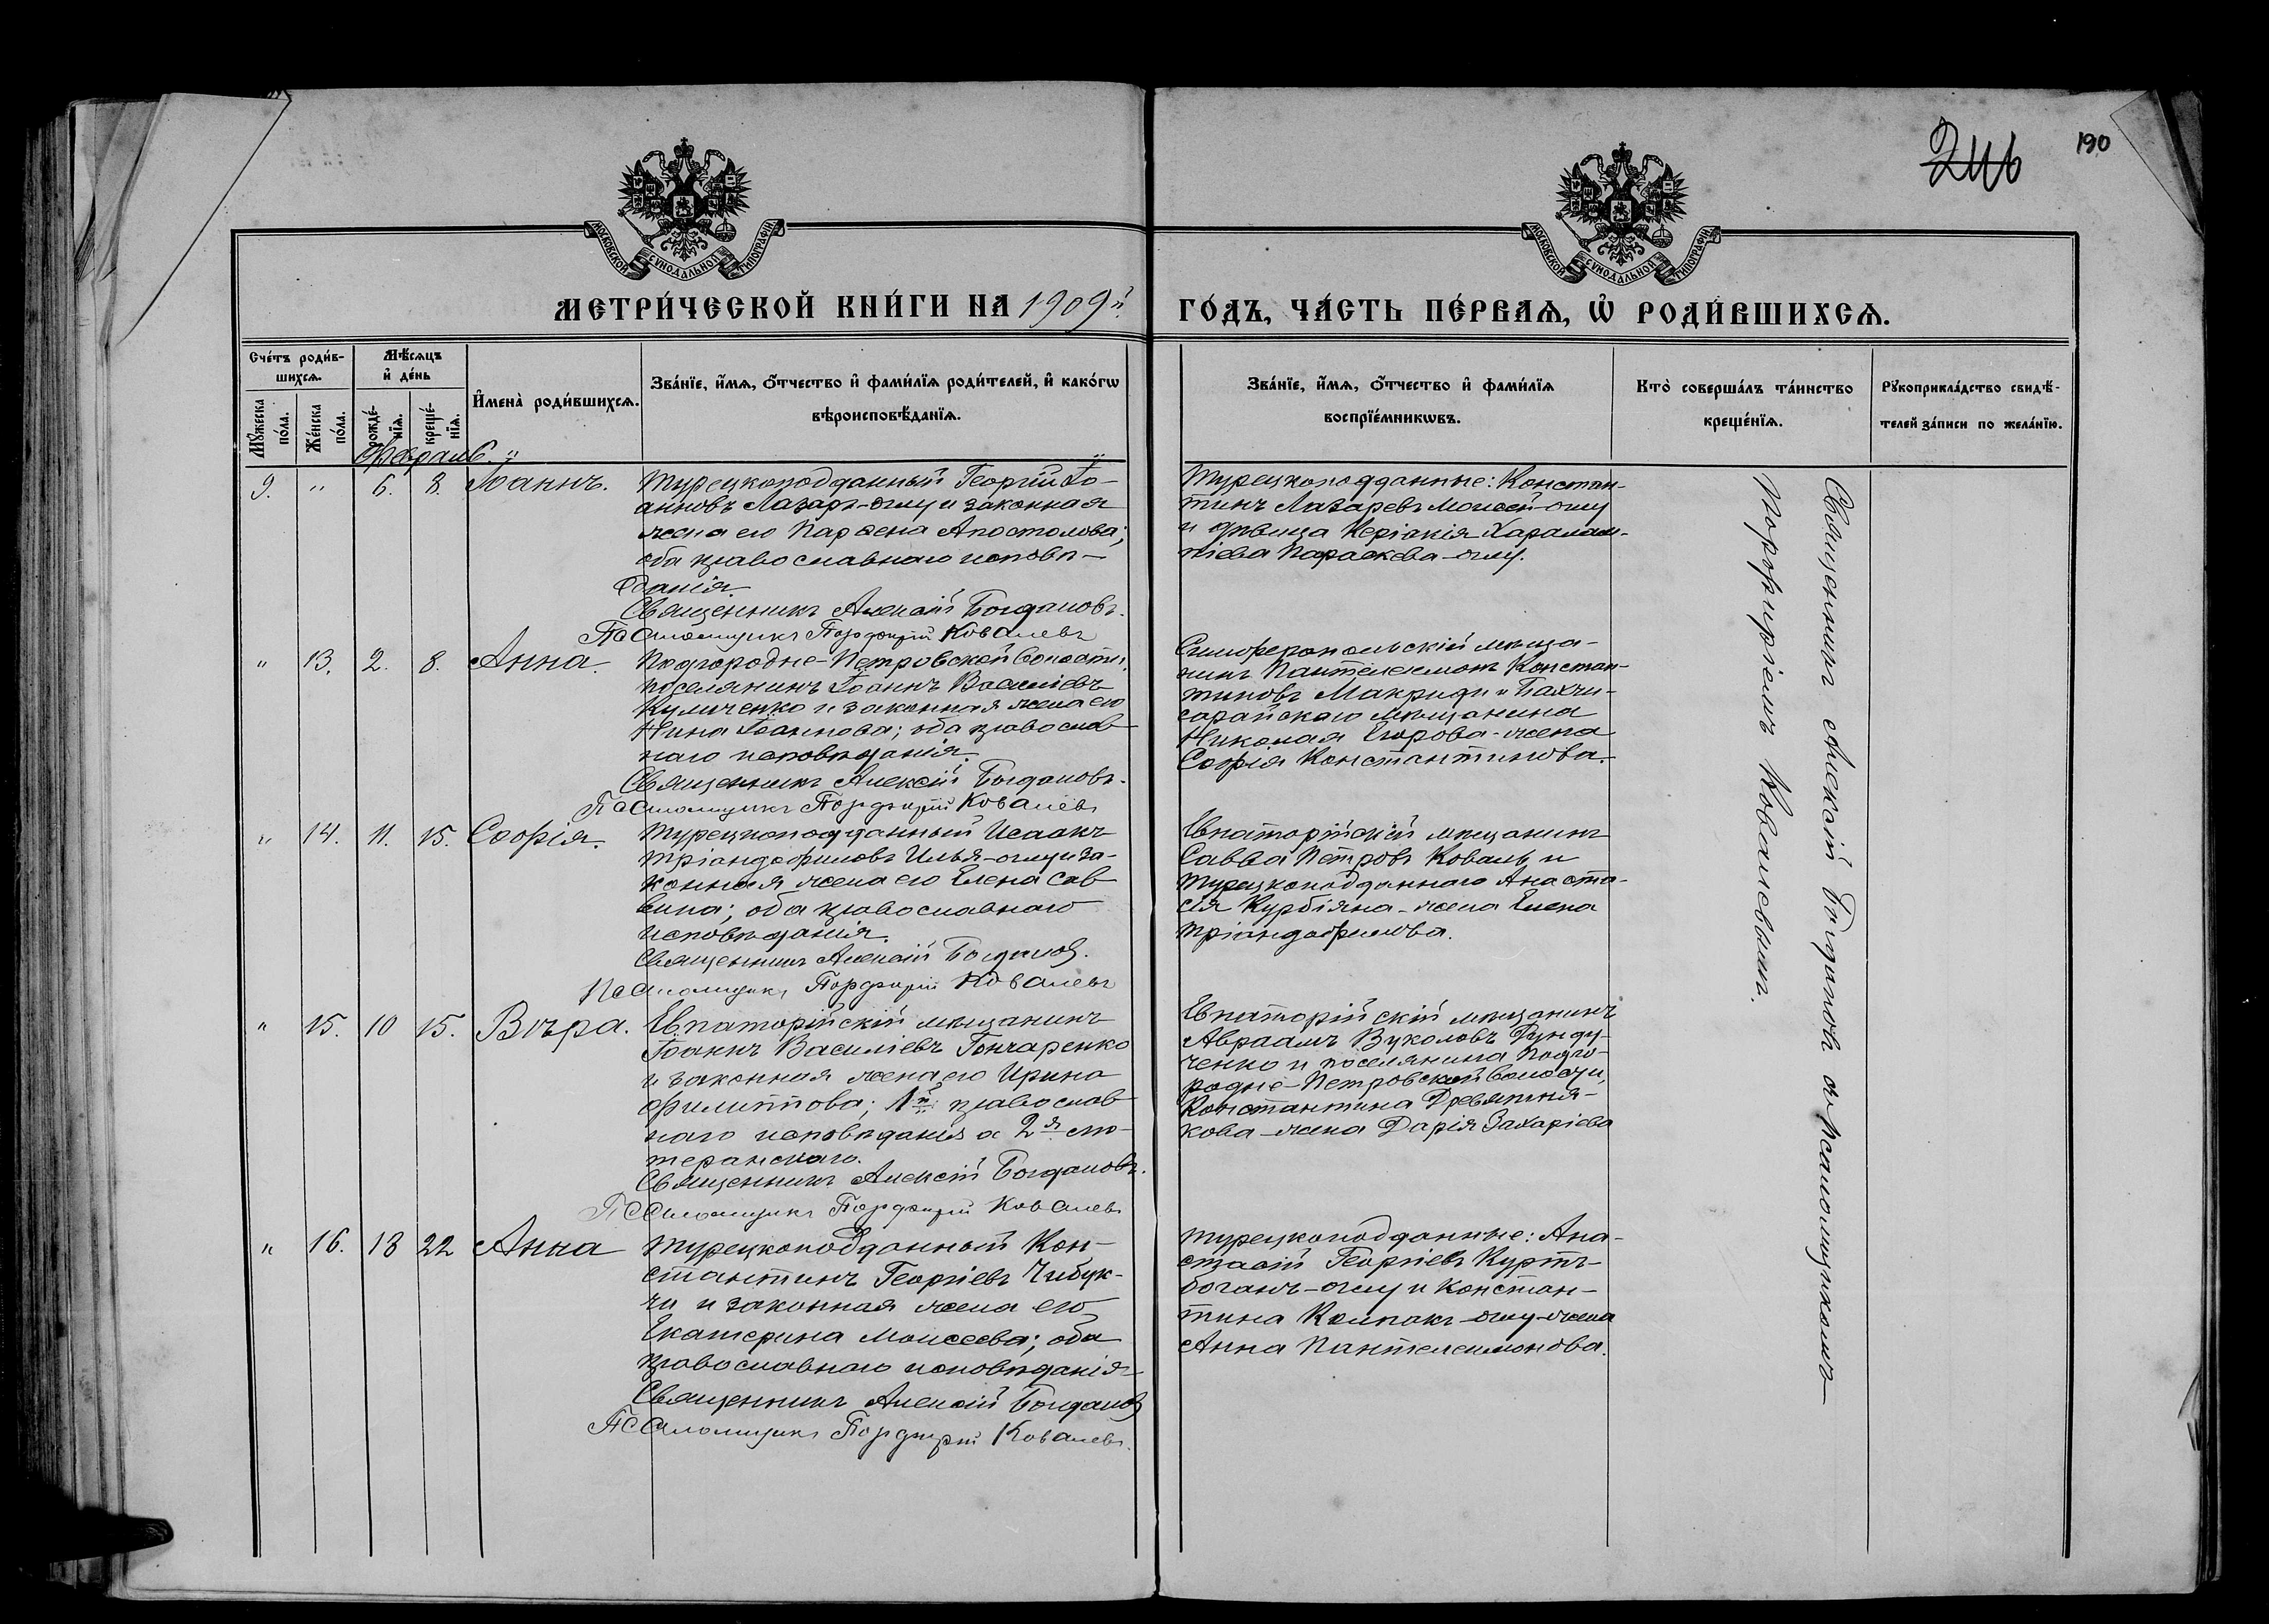 246
190
МОСКОВСКОЙ СѴНОДАЛЬНОЙ ТИПОГРАФІИ
МОСКОВСКОЙ СѴНОДАЛЬНОЙ ТИПОГРАФІИ
МЕТРИ́ЧЕСКОЙ КНИ́ГИ НА 1909й
ГО́ДЪ, ЧА́СТЬ ПЕ́РВАѦ, Ѡ҆ РОДИ́ВШИХСѦ.
Сче́тъ роди́в-
шихсѧ.
Мꙋ́жеска по́ла.
Же́нска по́ла.
Мѣ́сѧцъ и҆ де́нь
рожде́-
нїѧ.
креще́-
нїѧ.
И҆мена̀ роди́вшихсѧ.
Зва́нїе, и҆́мѧ, ѻ҆́тчество и҆ фами́лїѧ роди́телей, и҆ како́гѡ
вѣроисповѣ́данїѧ.
Зва́нїе, и҆́мѧ, ѻ҆́тчество и҆ фами́лїѧ
воспрїе́мникѡвъ.
Кто̀ соверша́лъ та́инство
креще́нїѧ.
Рꙋкоприкла́дство свидѣ́-
телей за́писи по жела́нїю.
Февраль.
9. " 6. 8. Іоаннъ.
Турецкоподданный Георгій Іо-
анновъ Лазарь-оглу и законная
жена его Парѳена Апостолова;
оба православнаго исповѣ-
данія.
Священникъ Алексій Богдановъ.
Псаломщикъ Порфирій Ковалевъ
Турецкоподданные: Констан-
тинъ Лазаревъ Моисей-оглу
и дѣвица Керіакія Харалам-
піева Параскева-оглу.
" 13. 2. 8. Анна.
Подгородне-Петровской волости,
поселянинъ Іоаннъ Василіевъ
Куличенко и законная жена его
Нина Іоаннова; оба православ-
наго исповѣданія.
Священникъ Алексій Богдановъ.
Псаломщикъ Порфирій Ковалевъ
Симферопольскій мѣща-
нинъ Пантелеимонъ Констан-
тиновъ Макриди и Бахчи-
сарайскаго мѣщанина
Николая Егорова-жена
Софія Константинова.
" 14. 11. 15. Софія.
Турецкоподданный Исаакъ
Тріандафиловъ Илья-оглу и за-
конная жена его Елена Сав-
вина; оба православнаго
исповѣданія.
Священникъ Алексій Богдановъ.
Псаломщикъ Порфирій Ковалевъ
Евпаторійскій мѣщанинъ
Савва Петровъ Коваль и
турецкоподданнаго Анаста-
сія Курбіяна-жена Елена
Тріандафилова.
" 15. 10 15. Вѣра.
Евпаторійскій мѣщанинъ
Іоаннъ Василіевъ Гончаренко
и законная жена его Ирина
Филиппова; 1й православ-
наго исповѣданія а 2я лю-
теранскаго.
Священникъ Алексій Богдановъ.
Псаломщикъ Порфирій Ковалевъ
Евпаторійскій мѣщанинъ
Авраамъ Вуколовъ Дунду-
ченко и поселянина Подго-
родне-Петровской волости,
Константина Древятня-
кова-жена Дарія Захаріева
" 16. 18 22 Анна
Турецкоподданный Кон-
стантинъ Георгіевъ Чибук-
чи и законная жена его
Екатерина Моисеева; оба
православнаго исповѣданія
Священникъ Алексій Богдановъ
Псаломщикъ Порфирій Ковалевъ.
Турецкоподданные: Ана-
стасій Георгіевъ Куртъ-
боганъ-оглу и Констан-
тина Колпакъ-оглу-жена
Анна Пантелеимонова.
Священникъ Алексій Богдановъ съ псаломщикомъ
Порфиріемъ Ковалевымъ.